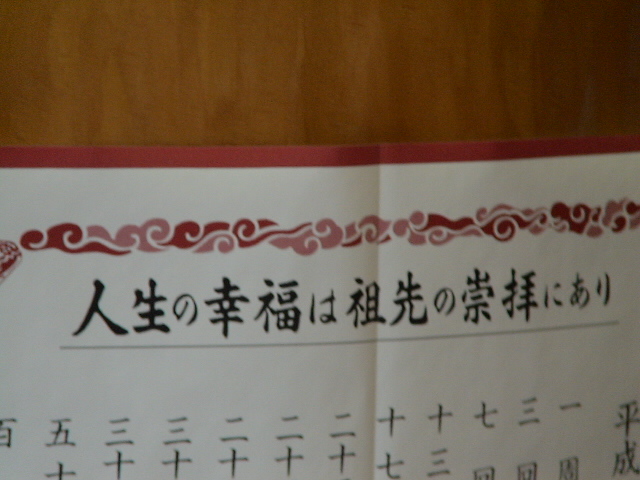 人生の幸福は祖先の崇拝にあり
平成
一周
三回
七回
十三
十七
二十
二十
二十
三十
三十
五十
百